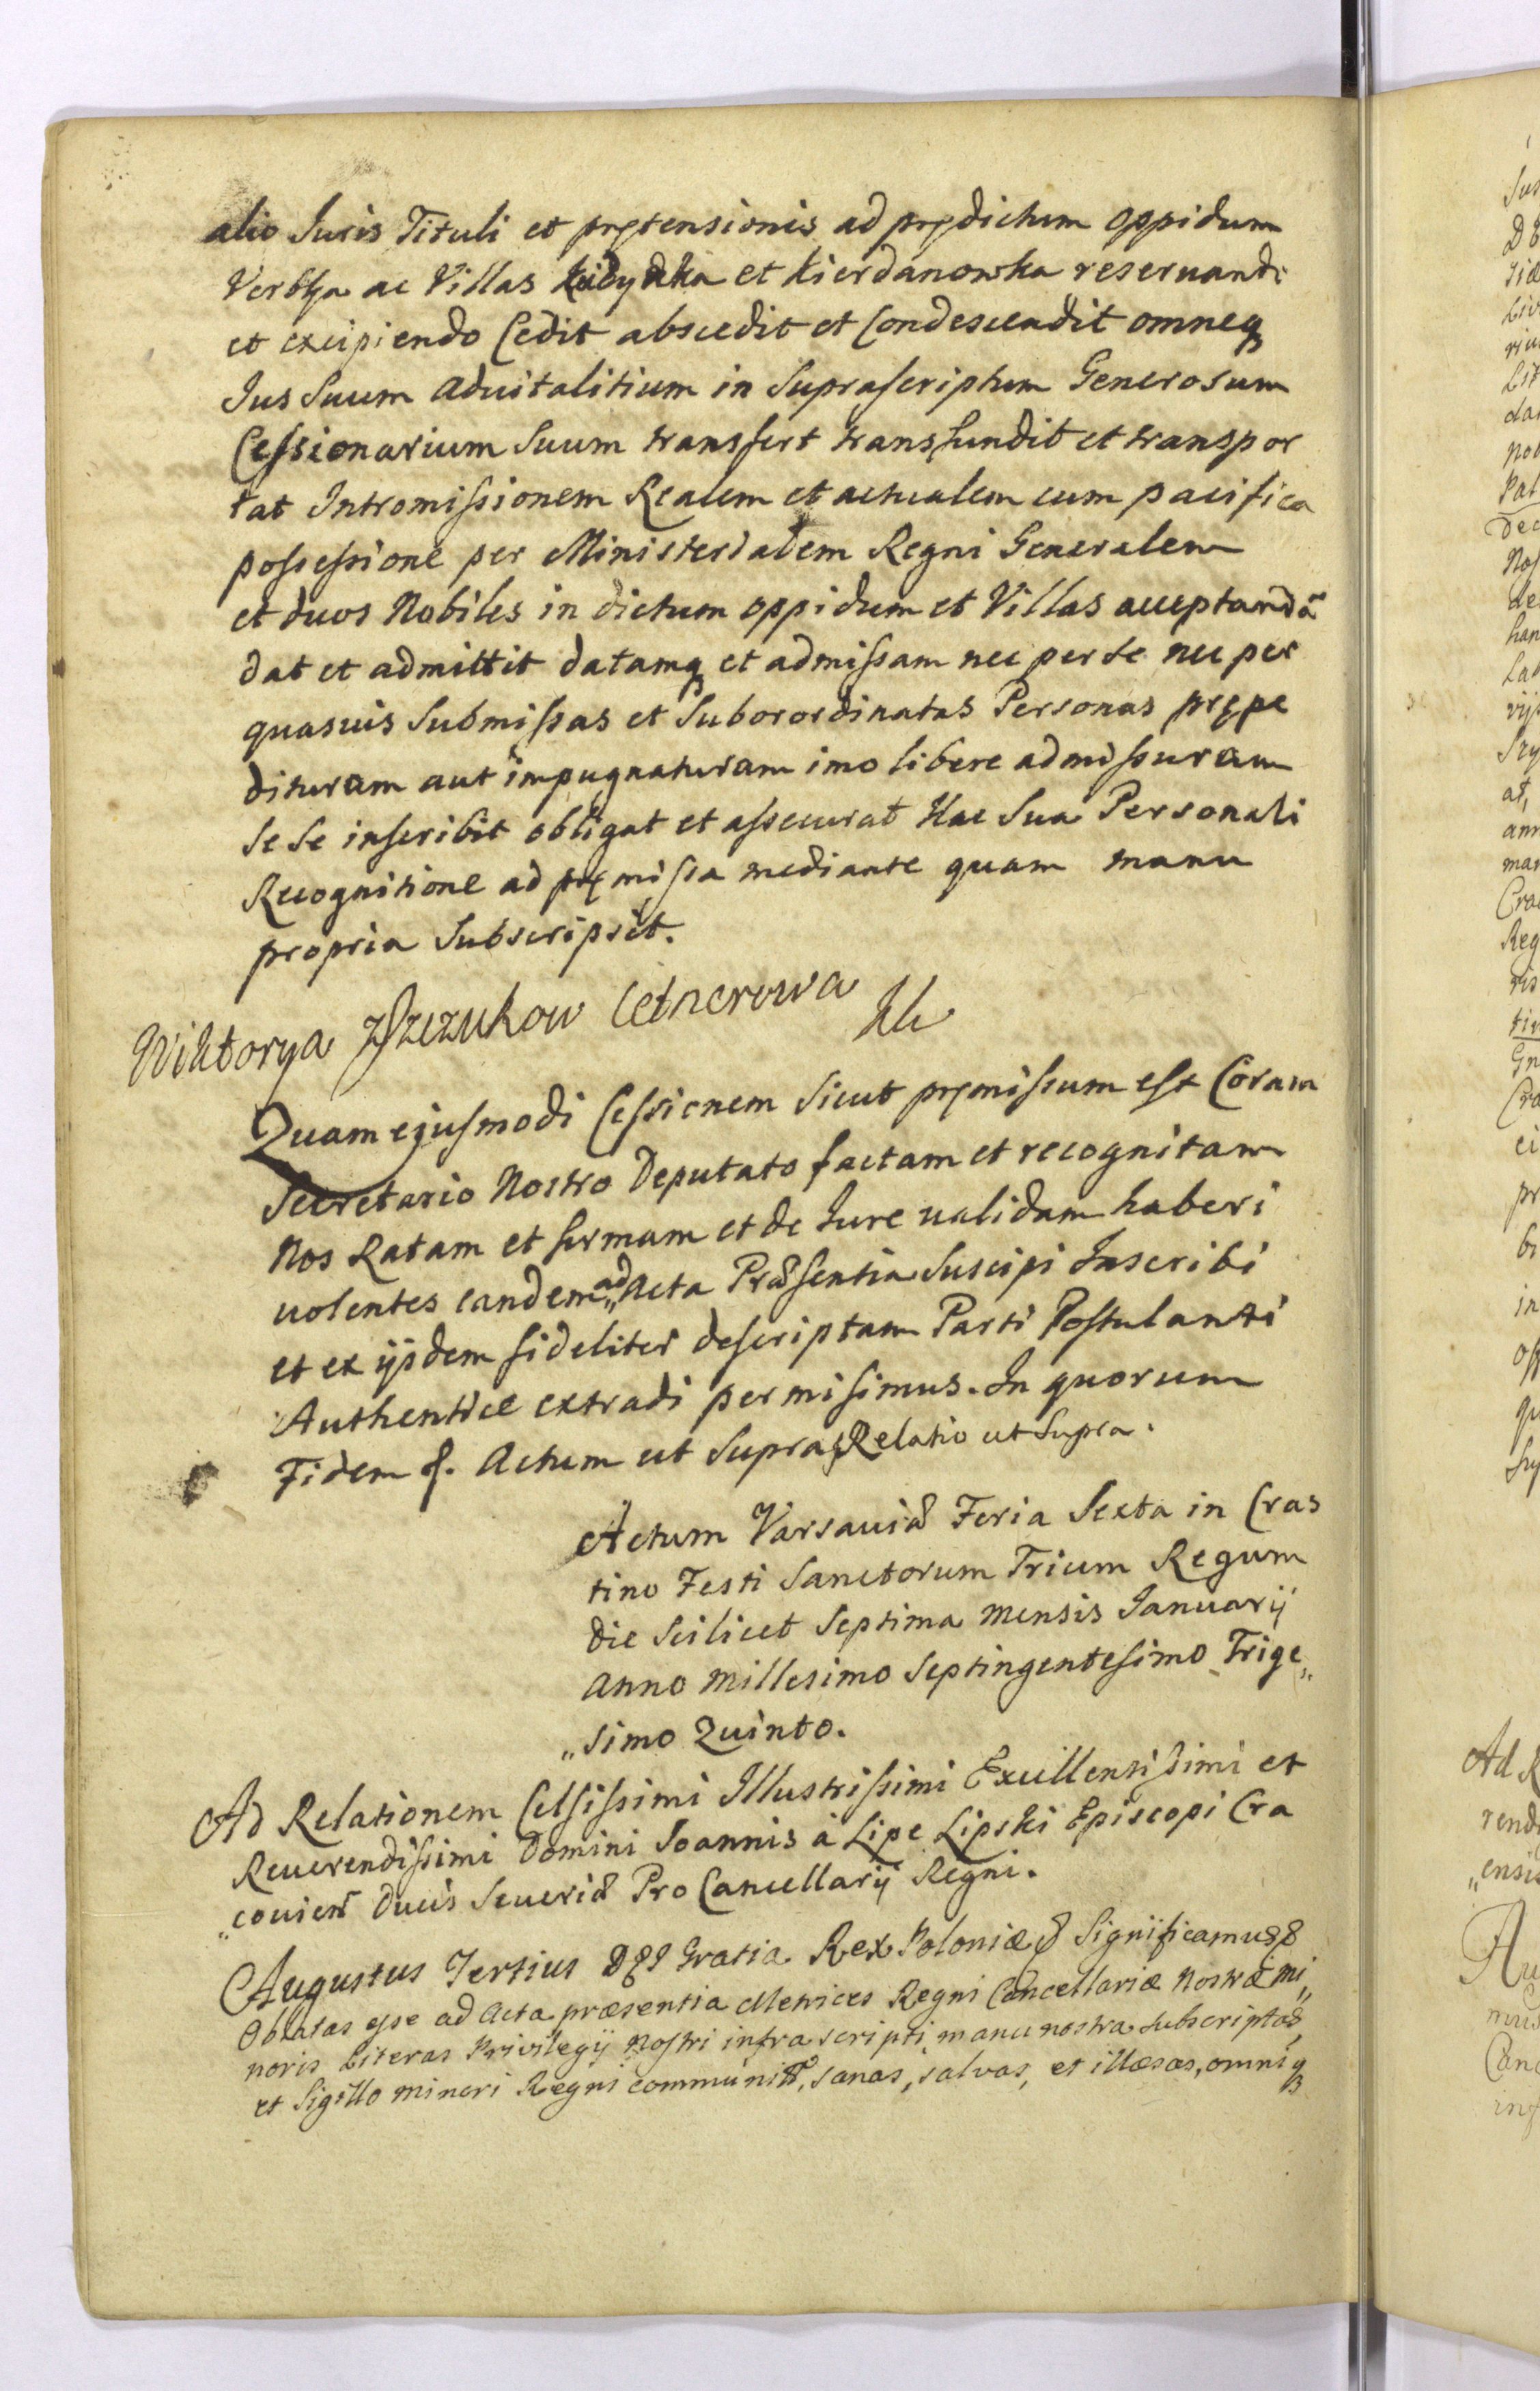 alio Juris Tituli et prętensionis ad prędictum oppidum
Verbża ac Villas et Kierdanowka reseruandi
et excipiendo Cedit abscedit et Condescendit omneq
Jus Suum aduitalitium in Suprascriptum Generosum
Cessionarium Suum transfert transfundit et transpor
tat Intromissionem Realem et actualem cum pacifica
possessione per Ministerialem Regni Generalem
et duos Nobiles in dictum oppidum et Villas acceptandã
dat et admittit datamq et admissam nec per se nec per
quasuis Submissas et Subororordinatas Personas prępe
dituram aut impugnaturam imo libere admissuram
Se Se inscribit obligat et assecurat Hac Sua Personali
Recognitione ad pręmissa mediante quam manu
propria Subscripsit.
Wiktorya zSzczukow Cetnerowa
Quam ejusmodi Cessionem Sicut pręmissum est Coram
Secretario Nostro Deputato factam et recognitam
Nos Ratam et firmam et de Jure validam haberi
uolentes eandem ad Acta Præsentia Suscipi Inscribi
et ex ijsdem fideliter descriptam Parti Postulanti
Authentice extradi permisimus. In quorum
Fidem &. Actum ut Supra & Relatio ut Supra.
Actum Varsauiæ Feria Sexta in Cras
tino Festi Sanctorum Trium Regum
die Scilicet Septima Mensis Januarij
Anno Millesimo Septingentesimo Trige„
„simo Quinto.
Ad Relationem Celsissimi Illustrissimi Excellentissimi et
Reuerendissimi Domini Joannis à Lipe Lipski Episcopi Cra
„couien Ducis Seueriæ Pro Cancellarij Regni.
Augustus Tertius DEI Gratia Rex Poloniæ & Significamus &
Oblatas esse ad Acta præsentia Metrices Regni Cancellariæ Nostræ Mi„
noris Literas Privilegij Nostri infra scripti, manu nostra subscriptas,
et Sigillo Minori Regni communitas, sanas, salvas, et illæsas, omniq